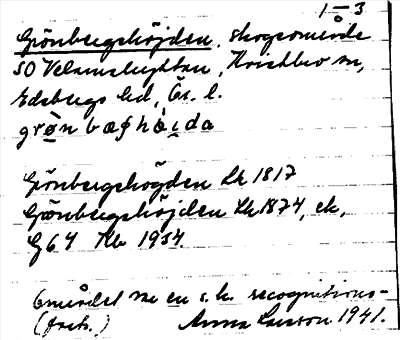 1 – 3
Grönbergshöjden, skogsområde
SO Velamshyttan, Kvistbro sn,
Edsbergs hd, Ör. l.
grø̀nbæʂhö̀i̯da
Grönbergshögden Lk 1817
Grönbergshöjden Lk 1874, ek,
G 64 Kb 1954.
Området var en s.k. recognitions-
(forts.) Anna Larsson 1941.